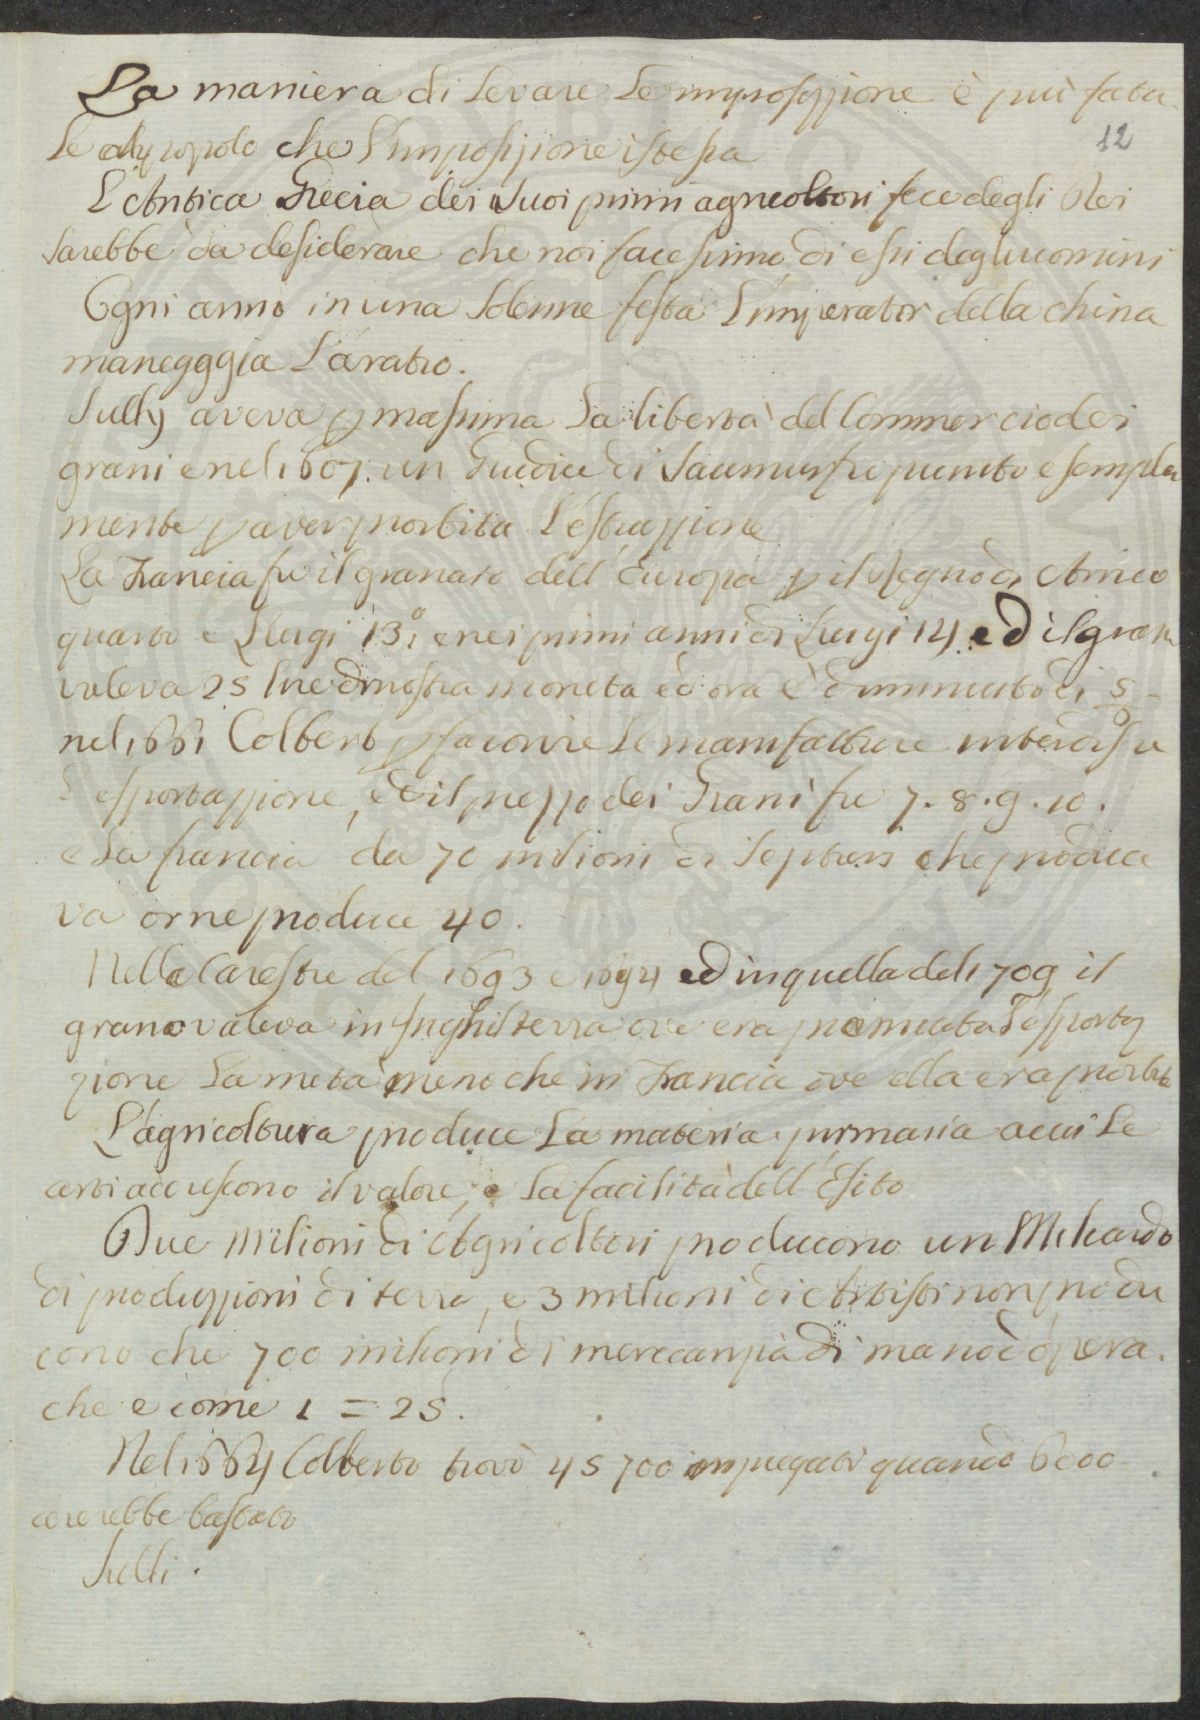 La maniera di levare le imposizzione è piu fata
le al popolo che l'imposizione istessa
12
L'Antica Grecia dei suoi primi agricoltori fece degli Dei
sarebbe da desiderare che noi facessimo di essi degl'uomini
Ogni anno in una solenne festa l'imperator della china
manegggia l'aratro.
Sully aveva p massima la libertà del Commercio dei
grani e nel 1607. un Giudice di Saumur fu punito esempla
mente p aver proibita l'estrazzione
La Francia fu il granaro dell'Europa p il Regno di Arrico
quarto e Luigi 13.° e nei primi anni di Luigi 14 ed il gran
valeva 25 lire di nostra moneta ed ora è diminuito di 5
nel 1661 Colbert p favorire le manifatture interdisse
l'esportazzione, ed il prezzo dei Grani fu 7. 8. 9. 10.
e la francia da 70 milioni di septiers che produce
va or ne produce 40.
Nelle Carestie del 1693 e 1694 ed in quella del 1709 il
grano valeva in Inghilterra ove era premiata l'esporta
zione la metà meno che in Francia ove ella era proibita
L'agricoltura produce la materia primaria a cui le
arti accrescono il valore, e la facilità dell'Esito
Due Milioni di Agricoltori producono un Miliardo
di produzzioni di terra, e 3 milioni di Artisti non produ
cono che 700 milioni di mercanzia di mano d'opera.
che e come 1 = 25.
Nel 1664 Colberto trovò 45700 impiegati quando 6000
averebbe bastato
Sulli.